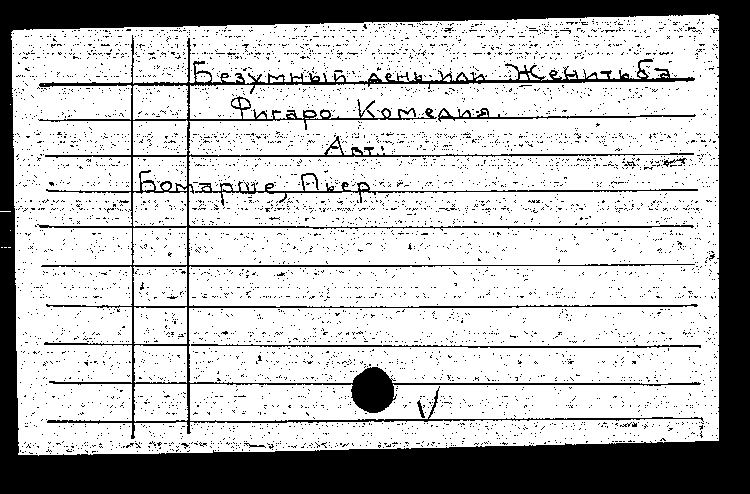 Безумный день, или Женитьба
Фигаро. Комедия.
Авт.:
Бомарше, Пьер.